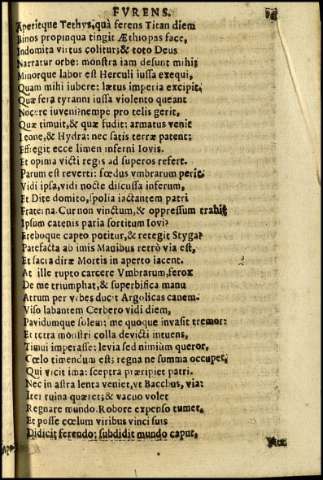 FVRENS.
Aperitque Tethys, quà ferens Titan diem
Binos propinqua tingit Æthiopas face,
Indomita virtus colitur; & toto Deus
Narratur orbe: monstra iam desunt mihi:
Minorque labor est Herculi iussa exequi,
Quam mihi iubere: lætus imperia excipit.
Quæ fera tyranni iussa violento queant
Nocere iuveni? nempe pro telis gerit,
Quæ timuit, & quæ fudit: armatus venit
Leone, & Hydra: nec satis terræ patent:
Effregit ecce limen inferni Iovis.
Et opima victi regis ad superos refert.
Parum est reverti: fœdus vmbrarum perit.
Vidi ipsa, vidi nocte discussa inferum,
Et Dite domito, spolia iactantem patri
Fraterna. Cur non vinctum, & oppressum trahit
Ipsum catenis paria sortitum Iovi?
Ereboque capto potitur, & retegit Styga?
Patefacta ab imis Manibus retrò via est,
Et sacra diræ Mortis in aperto iacent.
At ille rupto carcere Vmbrarum, ferox
De me triumphat, & superbifica manu
Atrum per vrbes ducit Argolicas canem.
Viso labantem Cerbero vidi diem,
Pavidumque solem: me quoque invasit tremor:
Et terna monstri colla devicti intuens,
Timui imperasse: levia sed nimium queror,
Cœlo timendum est; regna ne summa occupet,
Qui vicit ima: sceptra præripiet patri.
Nec in astra lenta veniet, vt Bacchus, via:
Iter ruina quæret; & vacuo volet
Regnare mundo. Robore expenso tumet,
Et posse cœlum viribus vinci suis
Didicit ferendo: subdidit mundo caput,